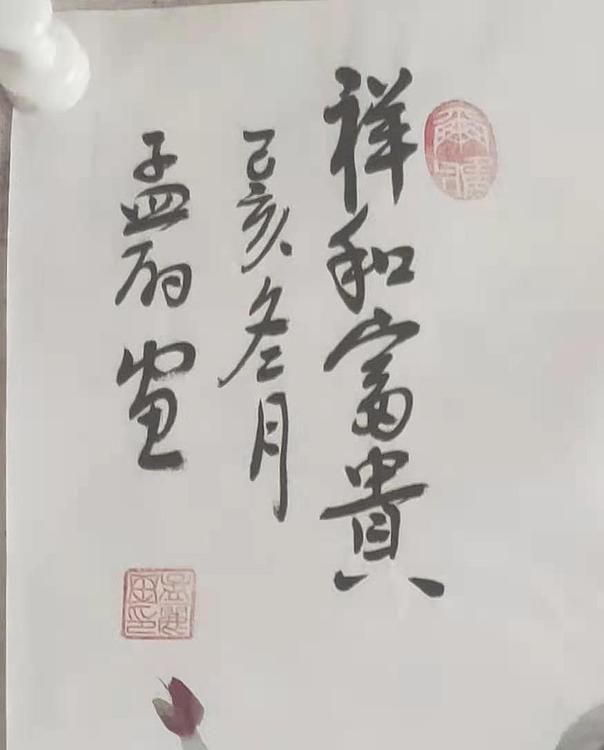 祥和富貴
己亥冬月
孟丽画